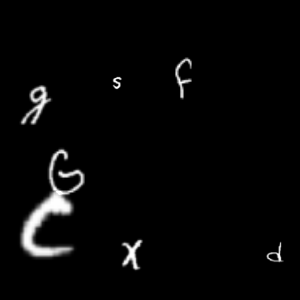 g s f
G
C x d